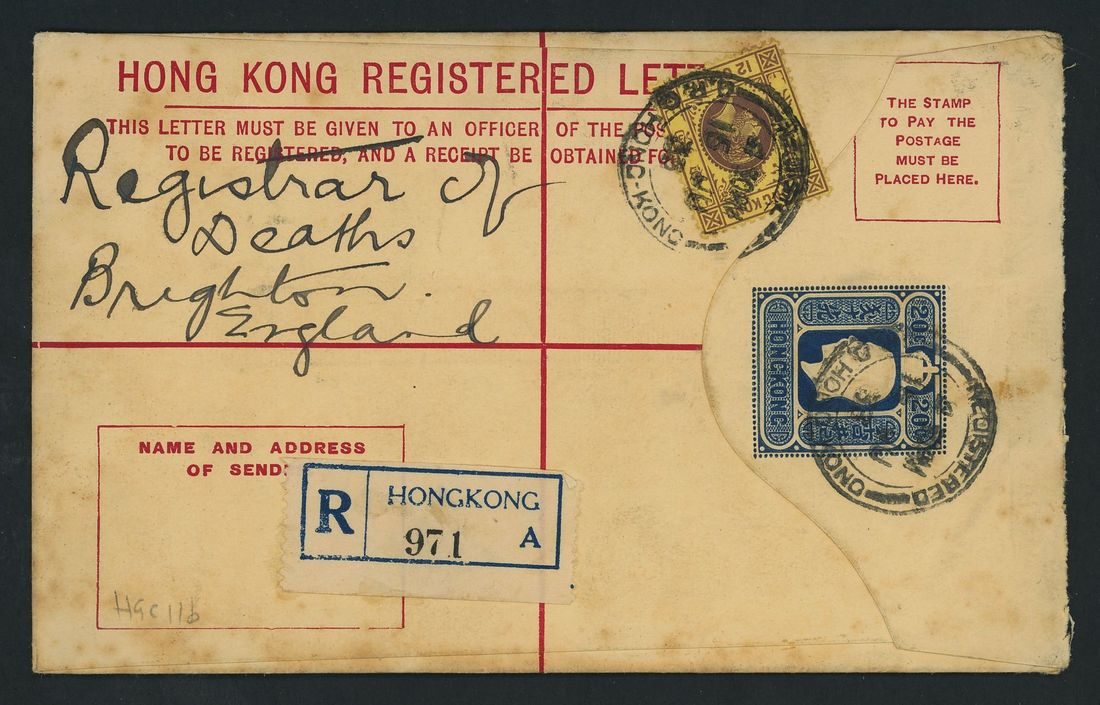 HONG KONG REGISTERED
THIS LETTER MUST BE GIVEN TO AN OFFICER OF THE
TO BE REGISTERED, AND A RECEIPT BE OBTAINED
THE STAMP
TO PAY THE
POSTAGE
MUST BE
PLACED HERE.
Registrar of
Deaths
Brighton.
England
HONG KONG
REGISTERED
NAME AND ADDRESS
OF
R
HONGKONG
971 A
HGC11b